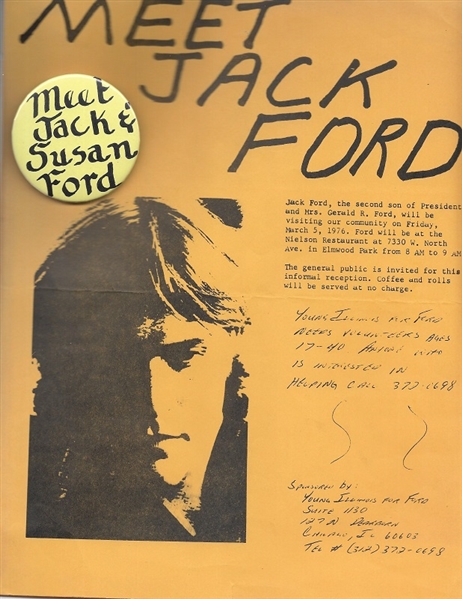 MEET
JACK
FORD
Meet
Jack &
Susan
Ford
Jack Ford, the second son of President
and Mrs. Gerald R. Ford, will be
visiting our community on Friday,
March 5, 1976. Ford will be at the
Nielson Restaurant at 7330 W. North
Ave. in Elmwood Park from 8 AM to 9 AM
The general public is invited for this
informal reception. Coffee and rolls
will be served at no charge.
YOUNG ILLINOIS FOR FORD
NEEDS VOLUNTEERS AGES
17-40 ANYONE WHO
IS INTERESTED IN
HELPING CALL 372-0698
SPONSORED by:
YOUNG ILLINOIS FOR FORD
SUITE 1130
127 N DEARBORN
CHICAGO, IL 60603
TEL # (312) 372-0698